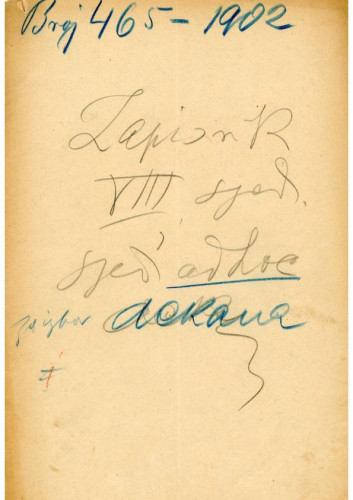 Broj 465 - 1902
Zapisnik
VIII sjed.
sjed. ad hoc
za izbor dekana